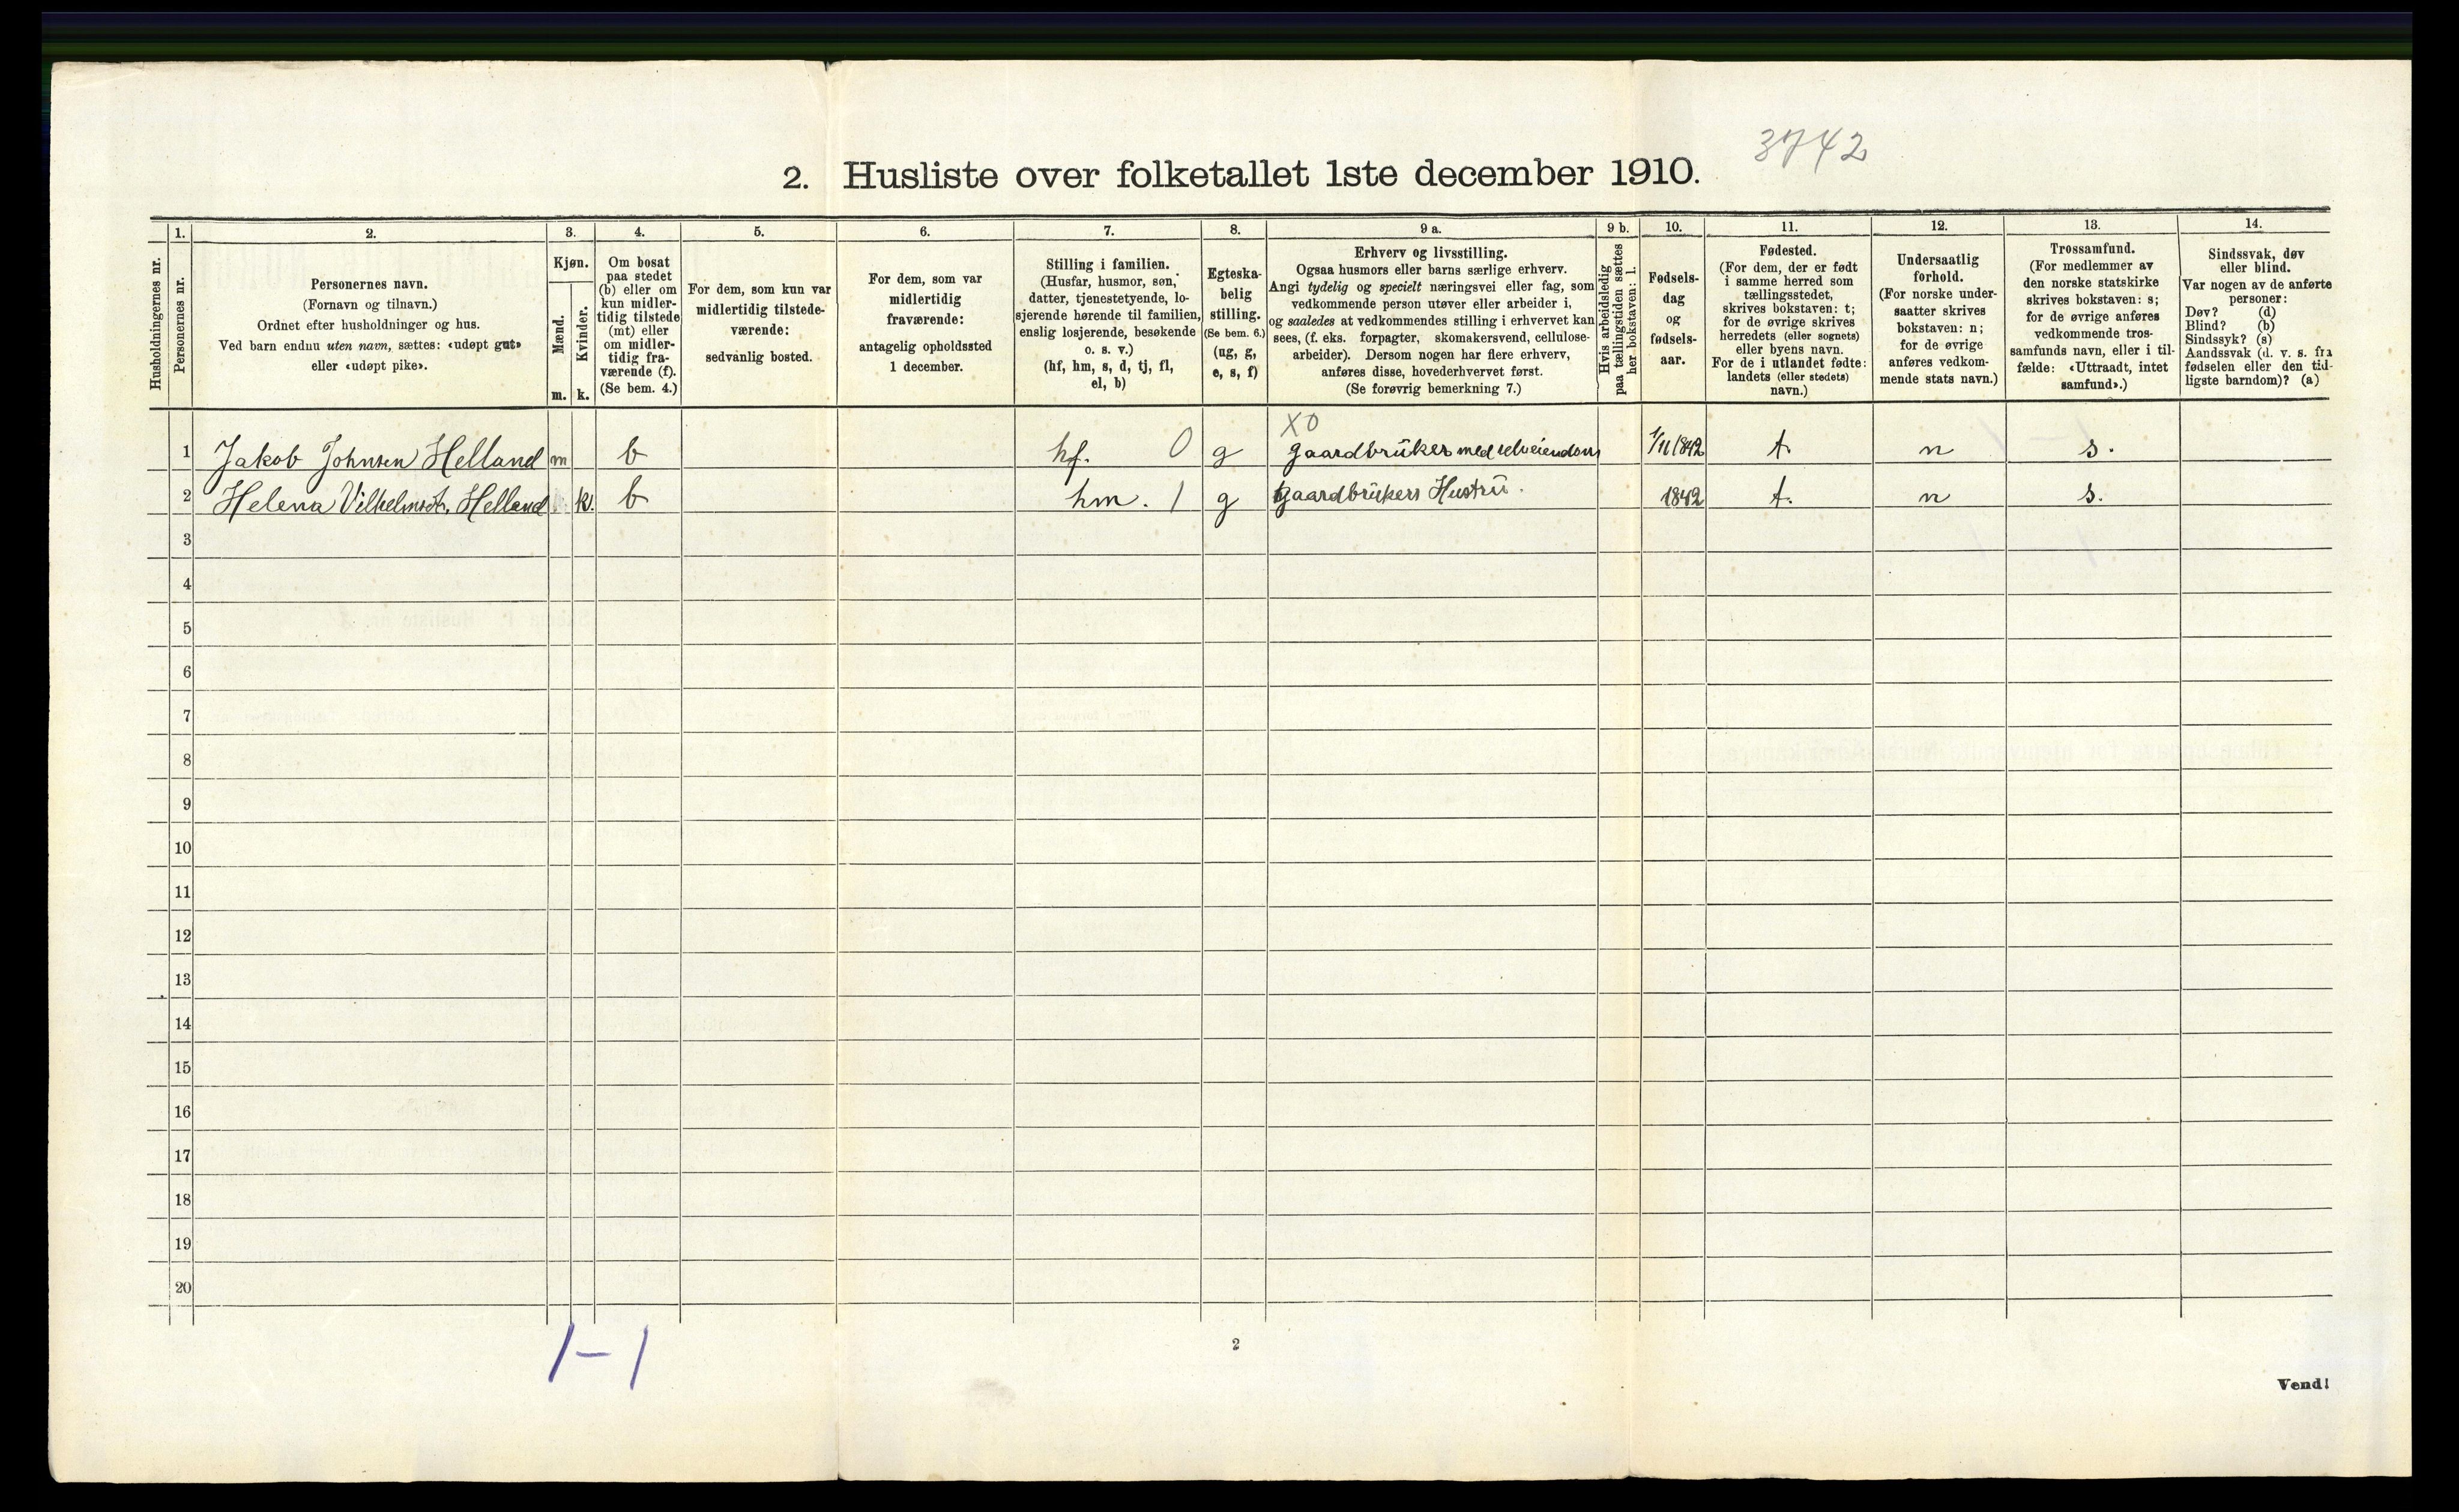 3742
2. Husliste over folketallet 1ste december 1910.
Husholdningernes nr.
1.
Personernes nr.
2.
Personernes navn.
(Fornavn og tilnavn.)
Ordnet efter husholdninger og hus.
Ved barn endnu uten navn, sættes: «udøpt gut»
eller «udøpt pike».
3.
Kjøn.
Mænd.
Kvinder.
m. k.
4.
Om bosat
paa stedet
(b) eller om
kun midler-
tidig tilstede
(mt) eller
om midler-
tidig fra-
værende (f).
(Se bem. 4.)
5.
For dem, som kun var
midlertidig tilstede-
værende:
sedvanlig bosted.
6.
For dem, som var
midlertidig
fraværende:
antagelig opholdssted
1 december.
7.
Stilling i familien.
(Husfar, husmor, søn,
datter, tjenestetyende, lo-
sjerende hørende til familien,
enslig losjerende, besøkende
o. s. v.)
(hf, hm, s, d, tj, fl,
el, b)
8.
Egteska-
belig
stilling.
(Se bem. 6.)
(ug, g,
e, s, f)
9 a.
Erhverv og livsstilling.
Ogsaa husmors eller barns særlige erhverv.
Angi tydelig og specielt næringsvei eller fag, som
vedkommende person utøver eller arbeider i,
og saaledes at vedkommendes stilling i erhvervet kan
sees, (f. eks. forpagter, skomakersvend, cellulose-
arbeider). Dersom nogen har flere erhverv,
anføres disse, hovederhvervet først.
(Se forøvrig bemerkning 7.)
9 b.
Hvis arbeidsledig
paa tællingstiden sættes
her bokstaven: l.
10.
Fødsels-
dag
og
fødsels-
aar.
11.
Fødested.
(For dem, der er født
i samme herred som
tællingsstedet,
skrives bokstaven: t;
for de øvrige skrives
herredets (eller sognets)
eller byens navn.
For de i utlandet fødte:
landets (eller stedets)
navn.)
12.
Undersaatlig
forhold.
(For norske under-
saatter skrives
bokstaven: n;
for de øvrige
anføres vedkom-
mende stats navn.)
13.
Trossamfund.
(For medlemmer av
den norske statskirke
skrives bokstaven: s;
for de øvrige anføres
vedkommende tros-
samfunds navn, eller i til-
fælde: «Uttraadt, intet
samfund».)
14.
Sindssvak, døv
eller blind.
Var nogen av de anførte
personer:
Døv? (d)
Blind? (b)
Sindssyk? (s)
Aandssvak (d. v. s. fra
fødselen eller den tid-
ligste barndom)? (a)
X0
1 Jakob Johnsen Helland m b hf. 0 g gaardbruker med selveiendom 1/11 1842 t. n s.
2 Helena Vilhelmsdt. Helland k. b hm. 1 g Gaardbrukers Hustru. 1842 t. n s.
3
4
5
6
7
8
9
10
11
12
13
14
15
16
17
18
19
20
1 – 1
2
Vend!